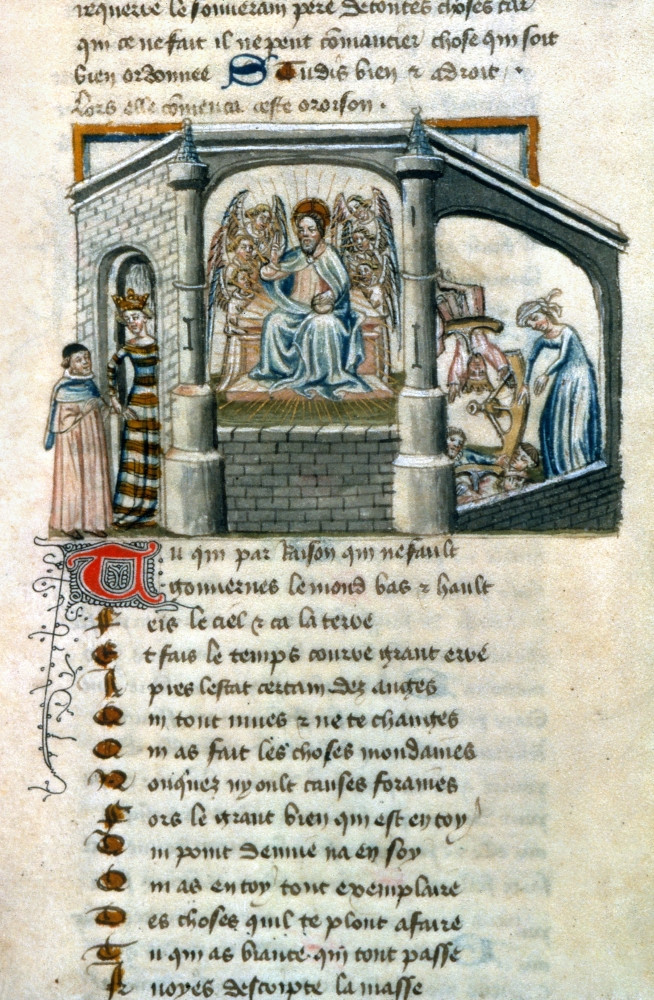 requerir le souverain pere de toutes choses car
qui ce ne fait il ne peut comancier chose qui soit
bien ordonnee Tudis bien & adroit.
Lors elle comenca ceste ororson.
Tu qui par Raison qui ne fault
gouvernes le mond bas & hault
feis le ciel & ca la terre
Et fais le temps courre grant erre
Apres lestat certain dez anges
Qui tout mues & ne te changes
Qui as fait les choses mondaines
Fors le grant bien qui est en toy
Qui point denvie na en soy
Qui as en toy tout exemplaire
Des choses quil te plout a faire
Tu qui as biaute qui tout passe
la masse